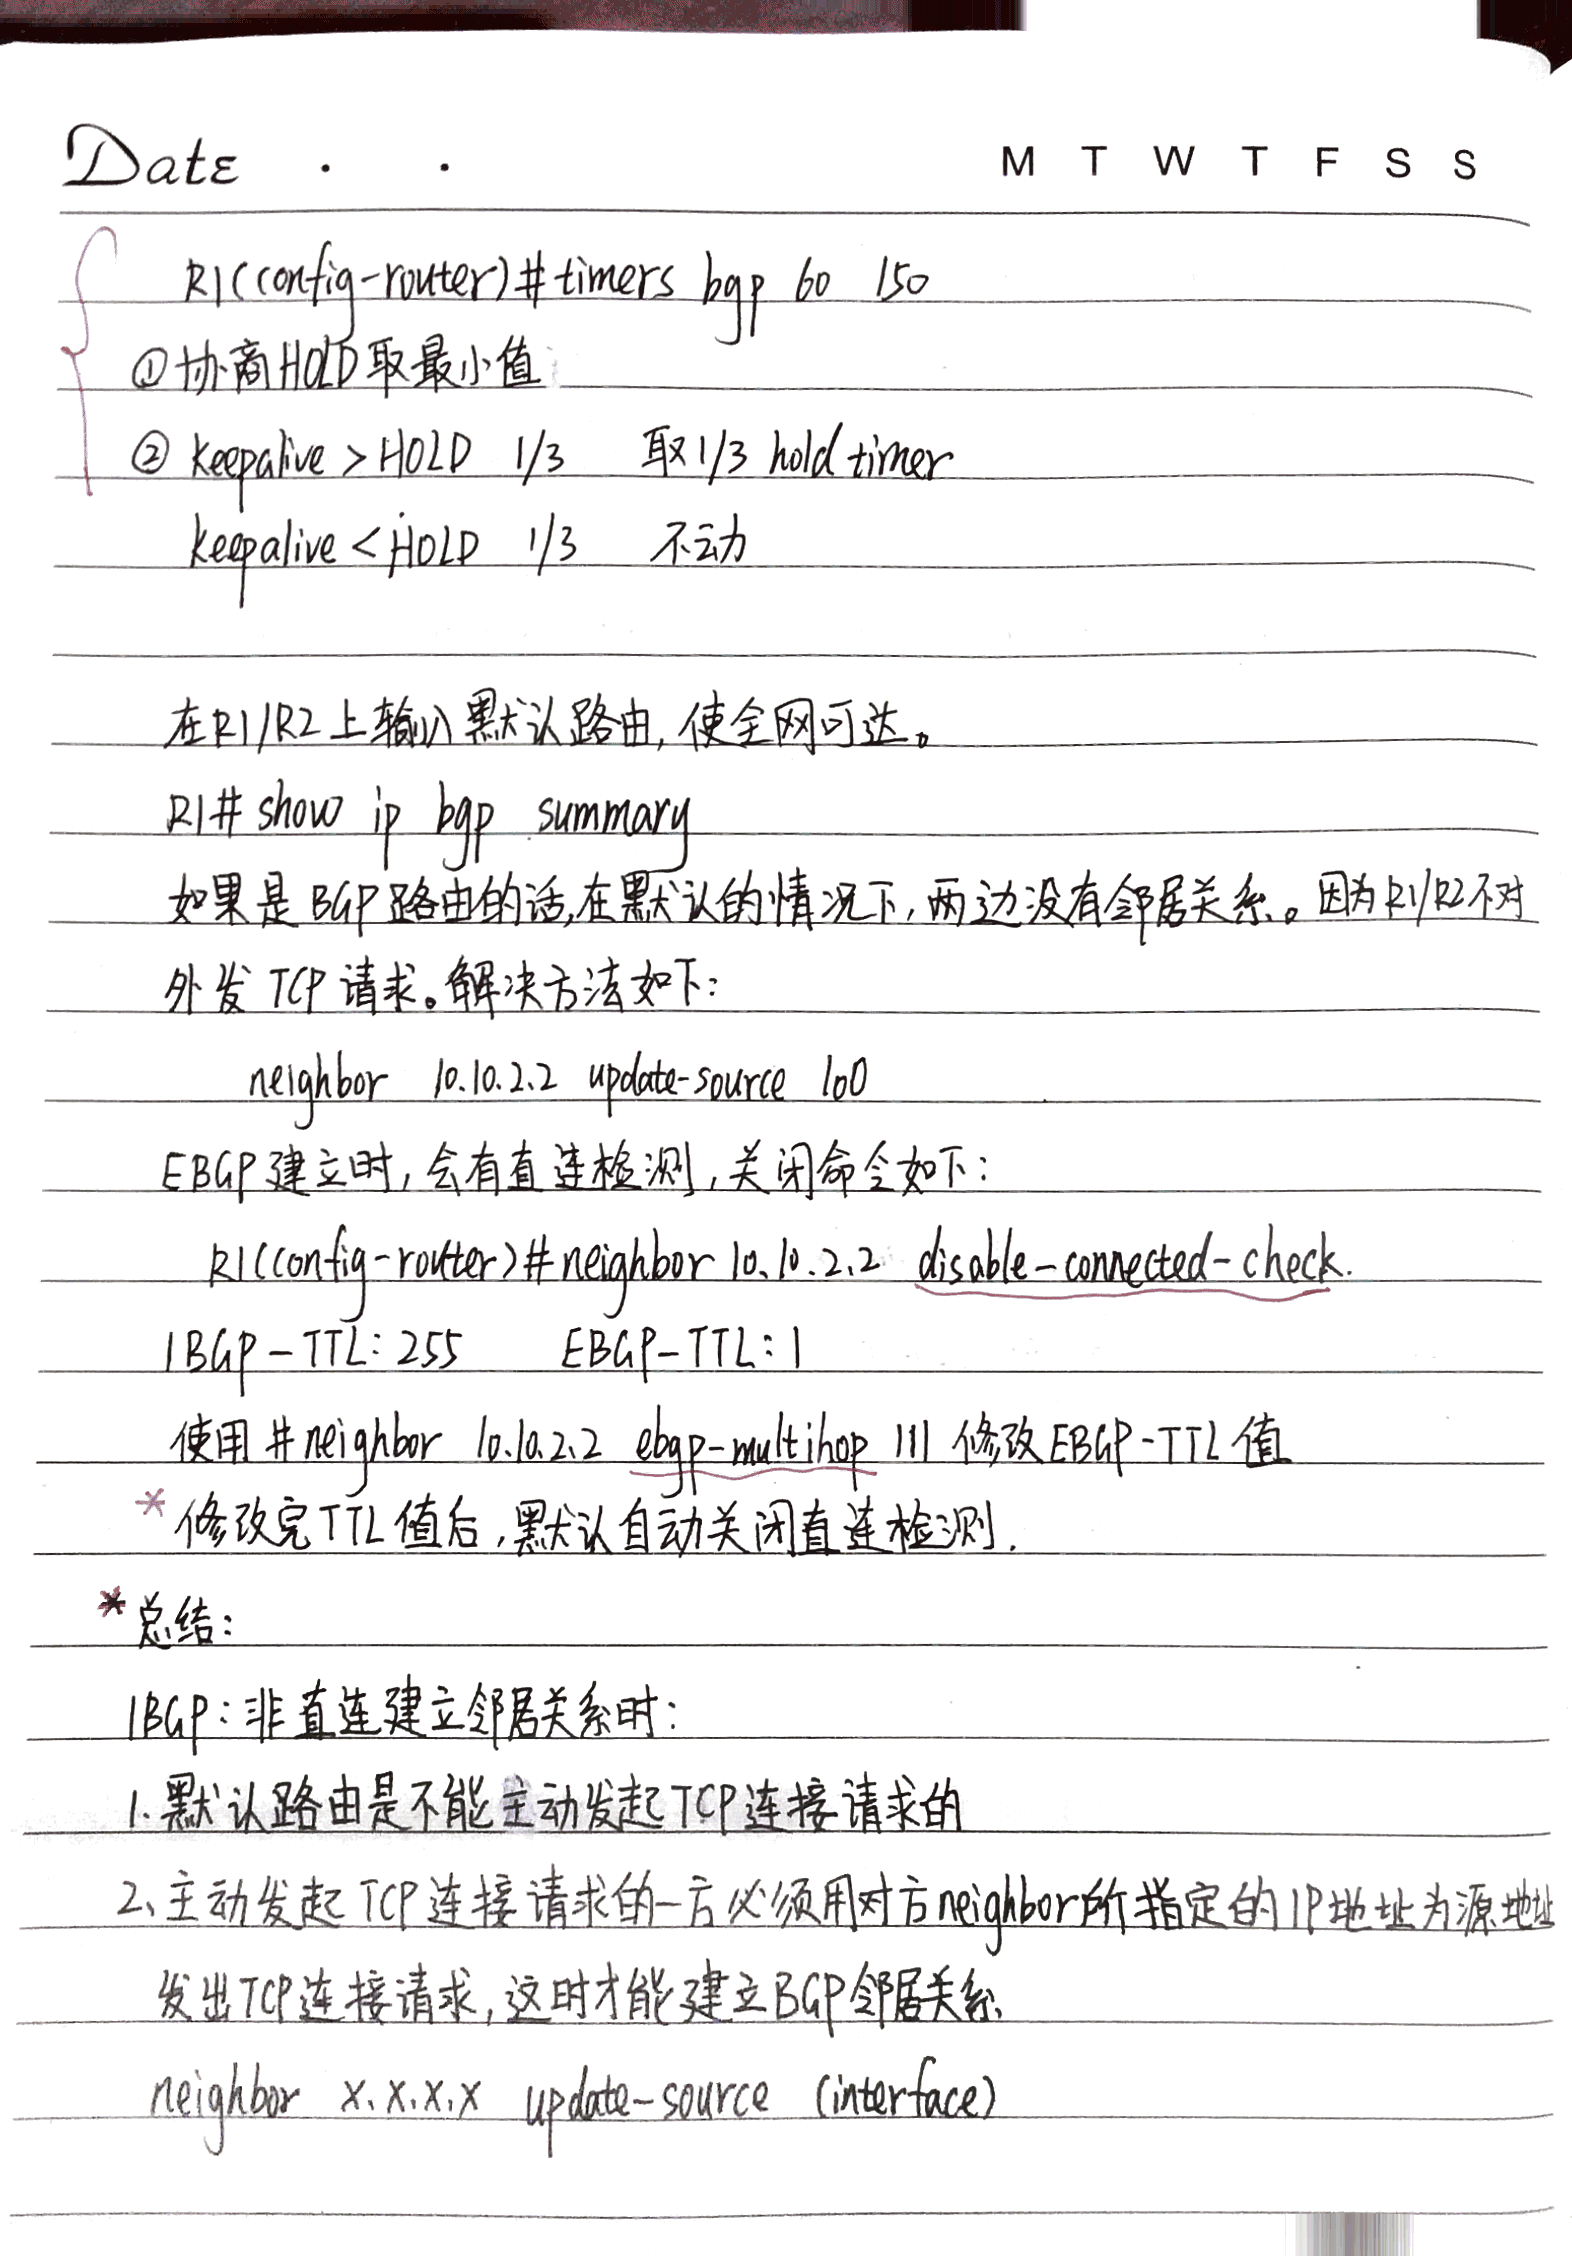 Date . .
M T W T F S S
R1(config-router)#timers bgp 60 150
①协商HOLD取最小值
② keepalive > HOLD 1/3 取1/3 hold timer
keepalive < HOLD 1/3 不动
在R1/R2上输入默认路由,使全网可达。
R1# show ip bgp summary
如果是BGP路由的话,在默认的情况下,两边没有邻居关系。因为R1/R2不对
外发TCP请求。解决方法如下:
neighbor 10.10.2.2 update-source lo0
EBGP建立时,会有直连检测,关闭命令如下:
R1(config-router)#neighbor 10.10.2.2 disable-connected-check.
IBGP-TTL:255 EBGP-TTL:1
使用#neighbor 10.10.2.2 ebgp-multihop 111 修改EBGP-TTL值
*修改完TTL值后,默认自动关闭直连检测.
*总结:
IBGP:非直连建立邻居关系时:
1.默认路由是不能主动发起TCP连接请求的
2、主动发起TCP连接请求的一方必须用对方neighbor所指定的IP地址为源地址
发出TCP连接请求,这时才能建立BGP邻居关系
neighbor x.x.x.x update-source (interface)